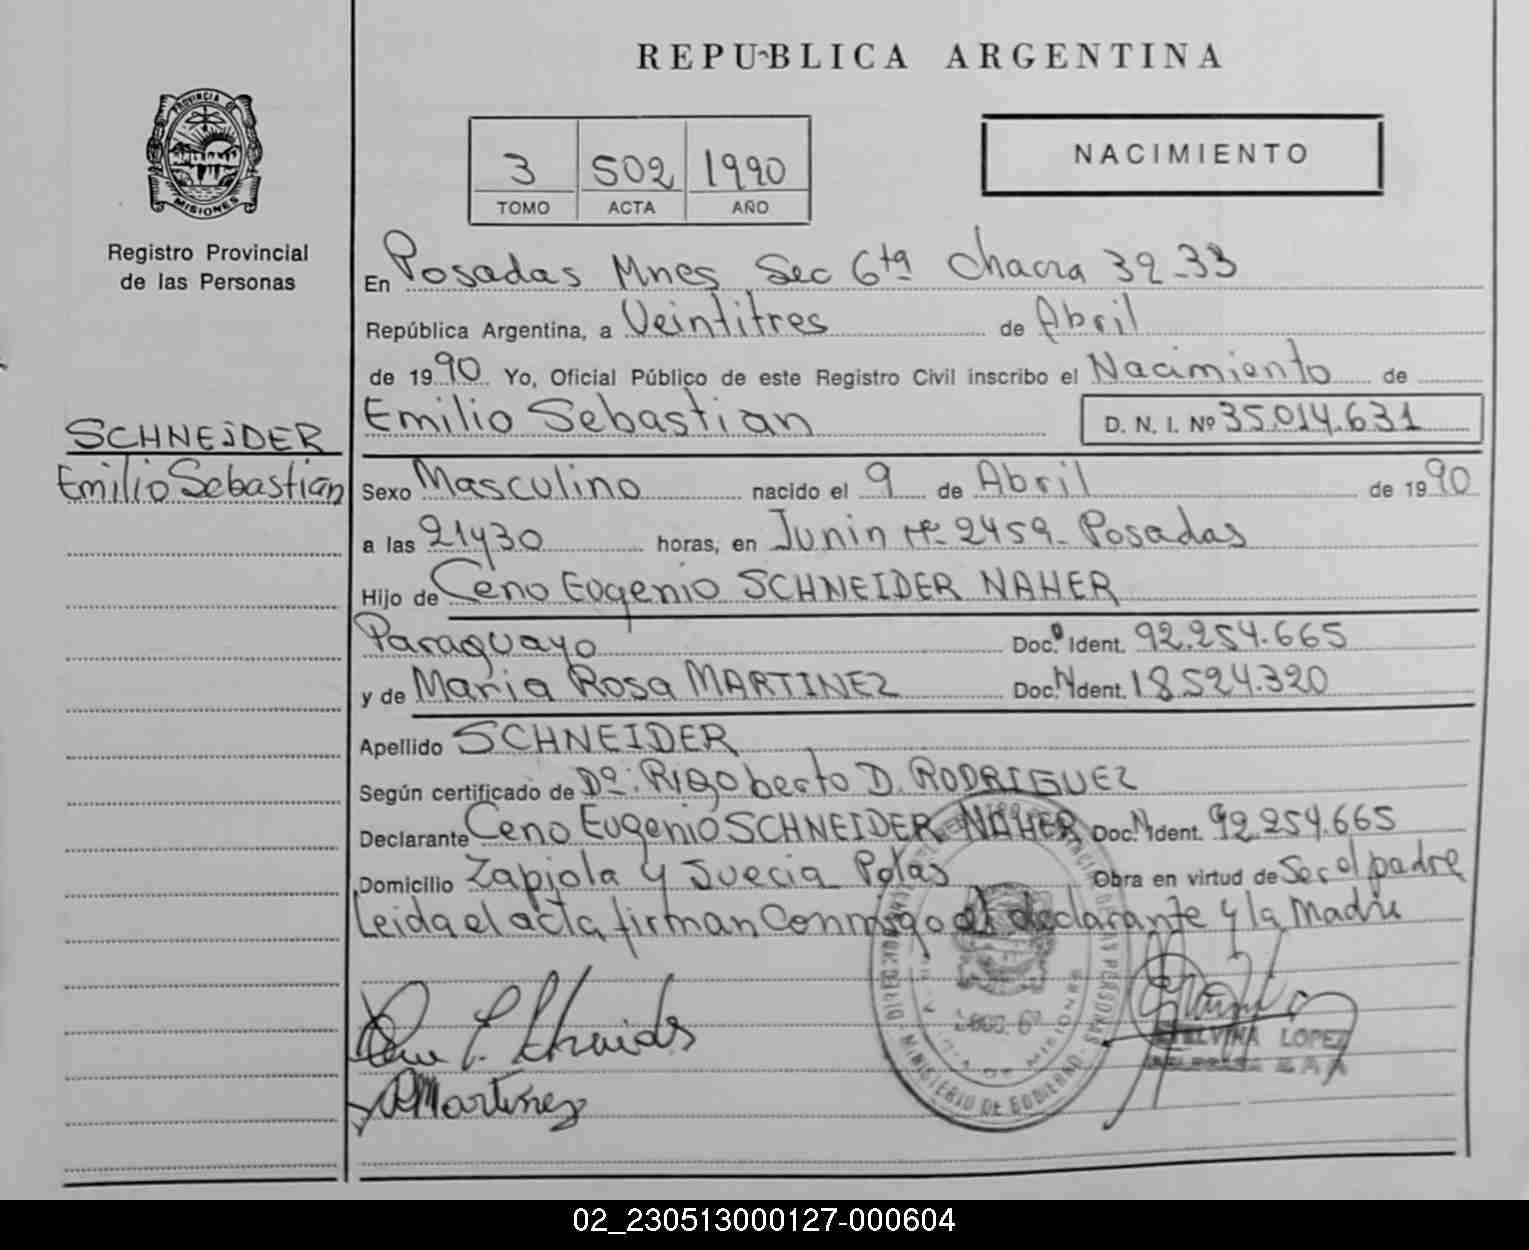 REPUBLICA ARGENTINA
PROVINCIA DE
MISIONES
Registro Provincial
de las Personas
3 502 1990
TOMO ACTA AÑO
NACIMIENTO
En Posadas Mnes Sec 6ta Chacra 32-33
República Argentina, a Veintitres de Abril
de 1990 Yo, Oficial Público de este Registro Civil inscribo el Nacimiento de
Emilio Sebastian D. N. I. Nº 35.014.631
SCHNEIDER
Emilio Sebastian
Sexo Masculino nacido el 9 de Abril de 1990
a las 21y30 horas, en Junin Nº 2459 - Posadas
Hijo de Ceno Eugenio SCHNEIDER NAHER
Paraguayo Doc. Ident. 92.254.665
y de Maria Rosa MARTINEZ Doc. Ident. 18.524.320
Apellido SCHNEIDER
Según certificado de Dº: Rigoberto D. RODRIGUEZ
Declarante Ceno Eugenio SCHNEIDER NAHER Doc. Ident. 92.254.665
Domicilio Zapiola y Suecia Pdas Obra en virtud de Ser el padre
Leida el acta, firman Conmigo el declarante y la Madre
MINISTERIO DE GOBIERNO
MISIONES
R Martinez
ETELVINA LOPEZ
02_230513000127-000604